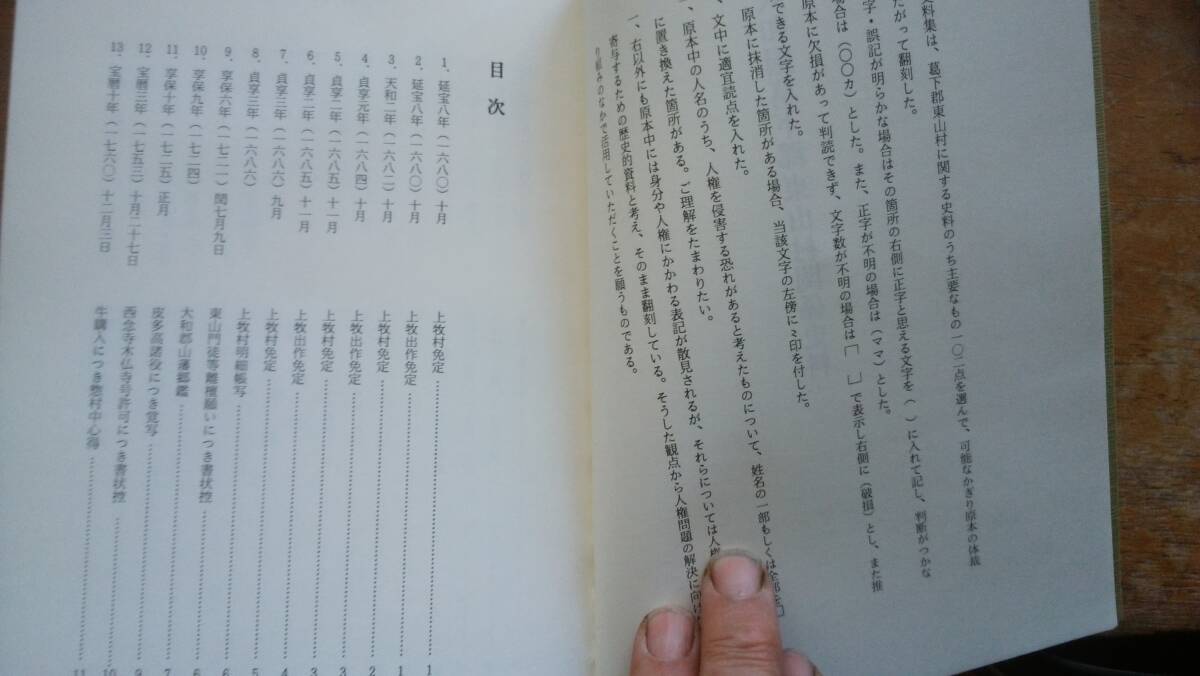 史料集は、葛下郡東山村に関する史料のうち主要なもの一〇二点を選んで、可能なかぎり原本の体裁
たがって翻刻した。
字・誤記が明らかな場合はその箇所の右側に正字と思える文字を( )に入れて記し、判断がつかな
場合は(〇〇カ)とした。また、正字が不明の場合は(ママ)とした。
原本に欠損があって判読できず、文字数が不明の場合は[ ]で表示し右側に(破損)とし、また推
できる文字を入れた。
原本に抹消した箇所がある場合、当該文字の左傍にミ印を付した。
、文中に適宜読点を入れた。
、原本中の人名のうち、人権を侵害する恐れがあると考えたものについて、姓名の一部もしくは全部を[
に置き換えた箇所がある。ご理解をたまわりたい。
一、右以外にも原本中には身分や人権にかかわる表記が散見されるが、それらについては人権
寄与するための歴史的資料と考え、そのまま翻刻している。そうした観点から人権問題の解決に向け
り組みのなかで活用していただくことを願うものである。
目次
1. 延宝八年(一六八〇)十月 上牧村免定 1
2. 延宝八年(一六八〇)十月 上牧出作免定 1
3. 天和二年(一六八二)十月 上牧村免定 2
4. 貞享元年(一六八四)十月 上牧出作免定 3
5. 貞享二年(一六八五)十一月 上牧村免定 3
6. 貞享二年(一六八五)十一月 上牧出作免定 4
7. 貞享三年(一六八六)九月 上牧村免定 5
8. 貞享三年(一六八六) 上牧村明細帳写 6
9. 享保六年(一七二一)閏七月九日 東山門徒等離檀願いにつき書状控 6
10. 享保九年(一七二四) 大和郡山藩郷鑑 7
11. 享保十年(一七二五)正月 皮多高諸役につき覚写 9
12. 宝暦三年(一七五三)十月二十七日 西念寺木仏寺号許可につき書状控 10
13. 宝暦十年(一七六〇)十二月三日 牛購入につき惣村中心得 11